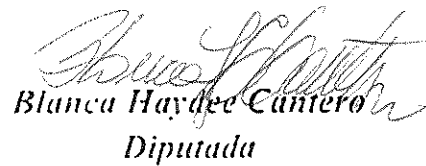 Blanca Haydee Cantero
Diputada